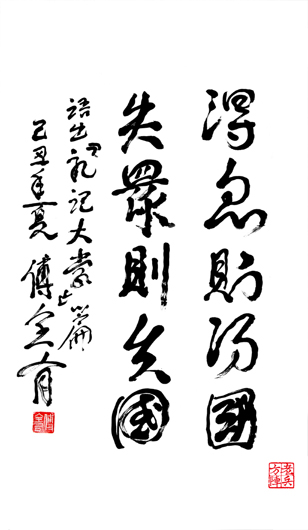 得众則得國
失眾則失國
語出「礼記大學」篇
己丑年夏 傅全有